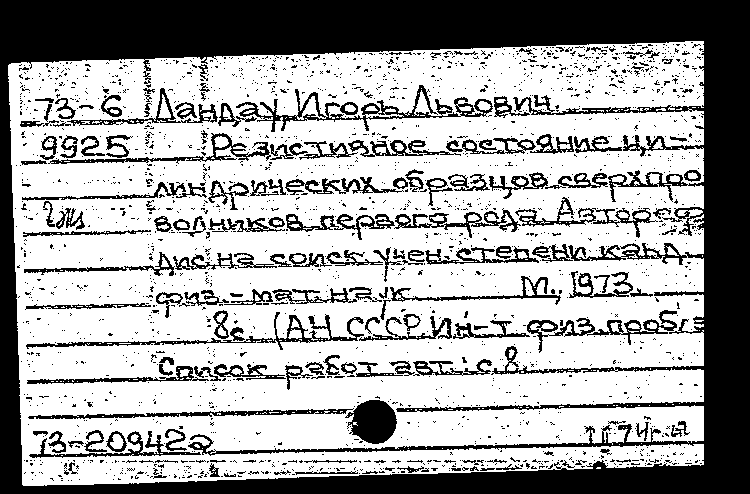 73-6 Ландау, Игорь Львович.
9925 Резистивное состояние ци-
линдрических образцов сверхпро
водников первого рода. Автореф
дис. на соиск учен. степени канд.
физ.-мат. наук М., 1973.
8с. (АН СССР. Ин-т физ. пробл
Список работ авт.: с. 8.
73-20942а